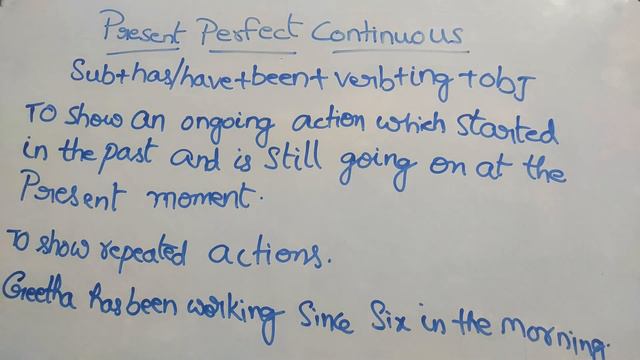 Present Perfect Continuous
Sub+has/have+been+verb+ing+obj
To show an ongoing action which started
in the past and is still going on at the
Present moment.
To show repeated actions.
Geetha has been working Since Six in the morning.